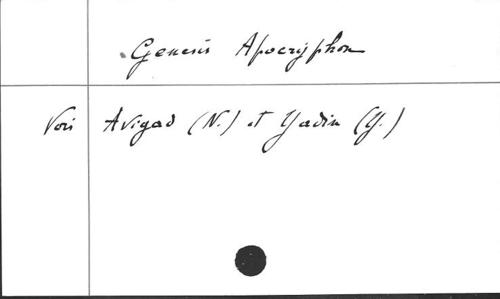 Genesis Apocryphon
Voir Avigad (N.) et Yadin (Y.)